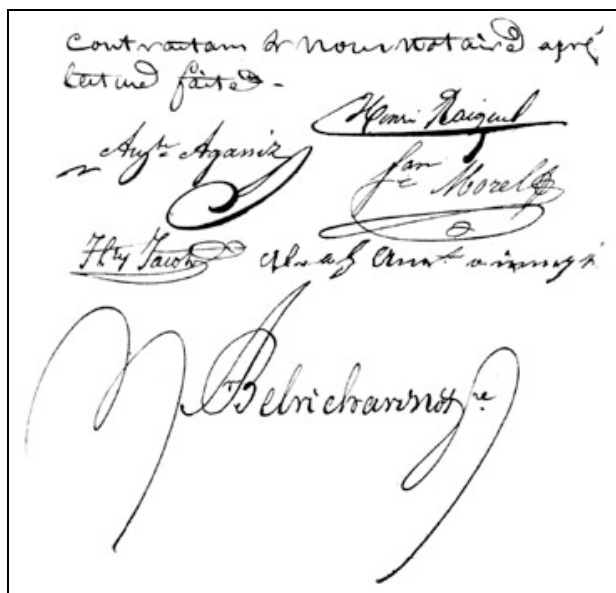 contractans & nous notaire après
lecture faite.
Henri Raiguel
Aug.te Agassiz
fan Morel
Flty Jacot
Belrichard not.re